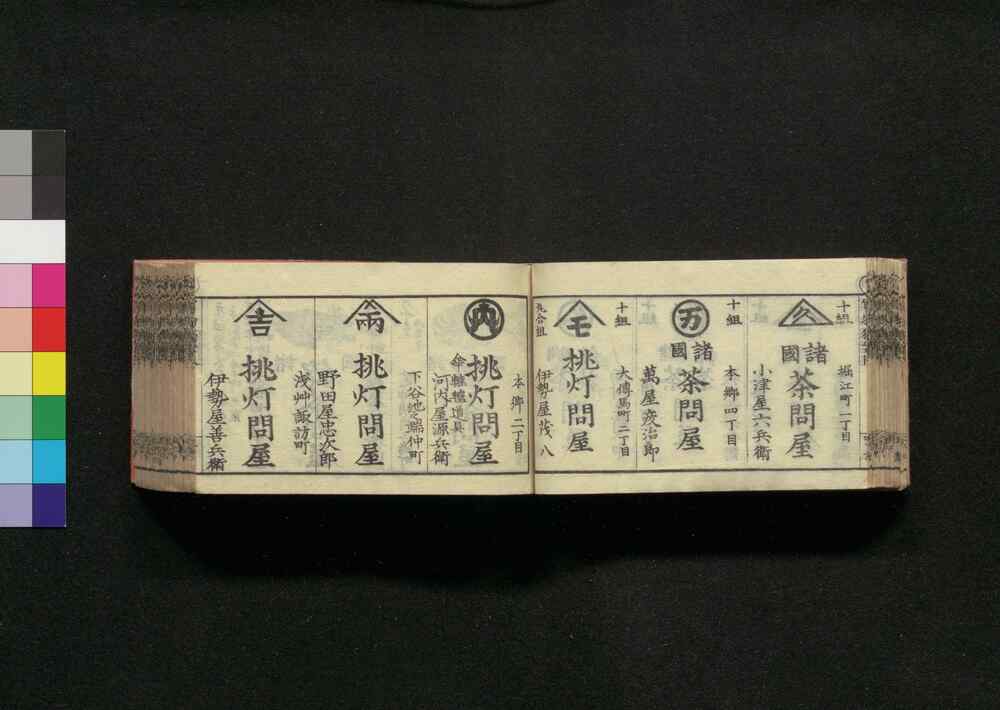 十組
堀江町一丁目
久
諸國
茶問屋
小津屋六兵衛
十組
本郷四丁目
万
諸國
茶問屋
萬屋彦治郎
十組
大傳馬町二丁目
モ
挑灯問屋
九合組
伊勢屋茂八
本郷二丁目
挑灯問屋
傘轆轤道具
河内屋源兵衛
下谷池之端仲町
挑灯問屋
野田屋忠次郎
浅艸諏訪町
吉
挑灯問屋
伊勢屋善兵衛